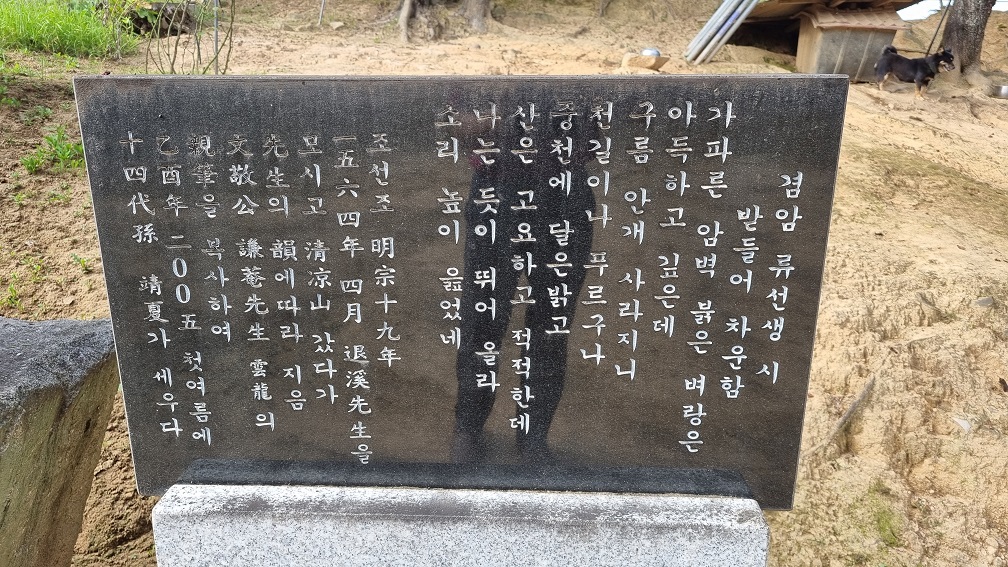 겸암 류선생 시
받들어 차운함
가파른 암벽 붉은 벼랑은
아득하고 깊은데
구름 안개 사라지니
천길이나 푸르구나
중천에 달은밝고
산은 고요하고 적적한데
나는 듯이 뛰어 올라
소리 높이 읊었네
조선조 明宗十九年
一五六四年 四月 退溪先生을
모시고 清凉山 갔다가
先生의 韻에따라 지음
文敬公 謙菴先生 雲龍의
親筆을 복사하여
乙酉年 二00五 첫여름에
十四代孫 靖夏가 세우다